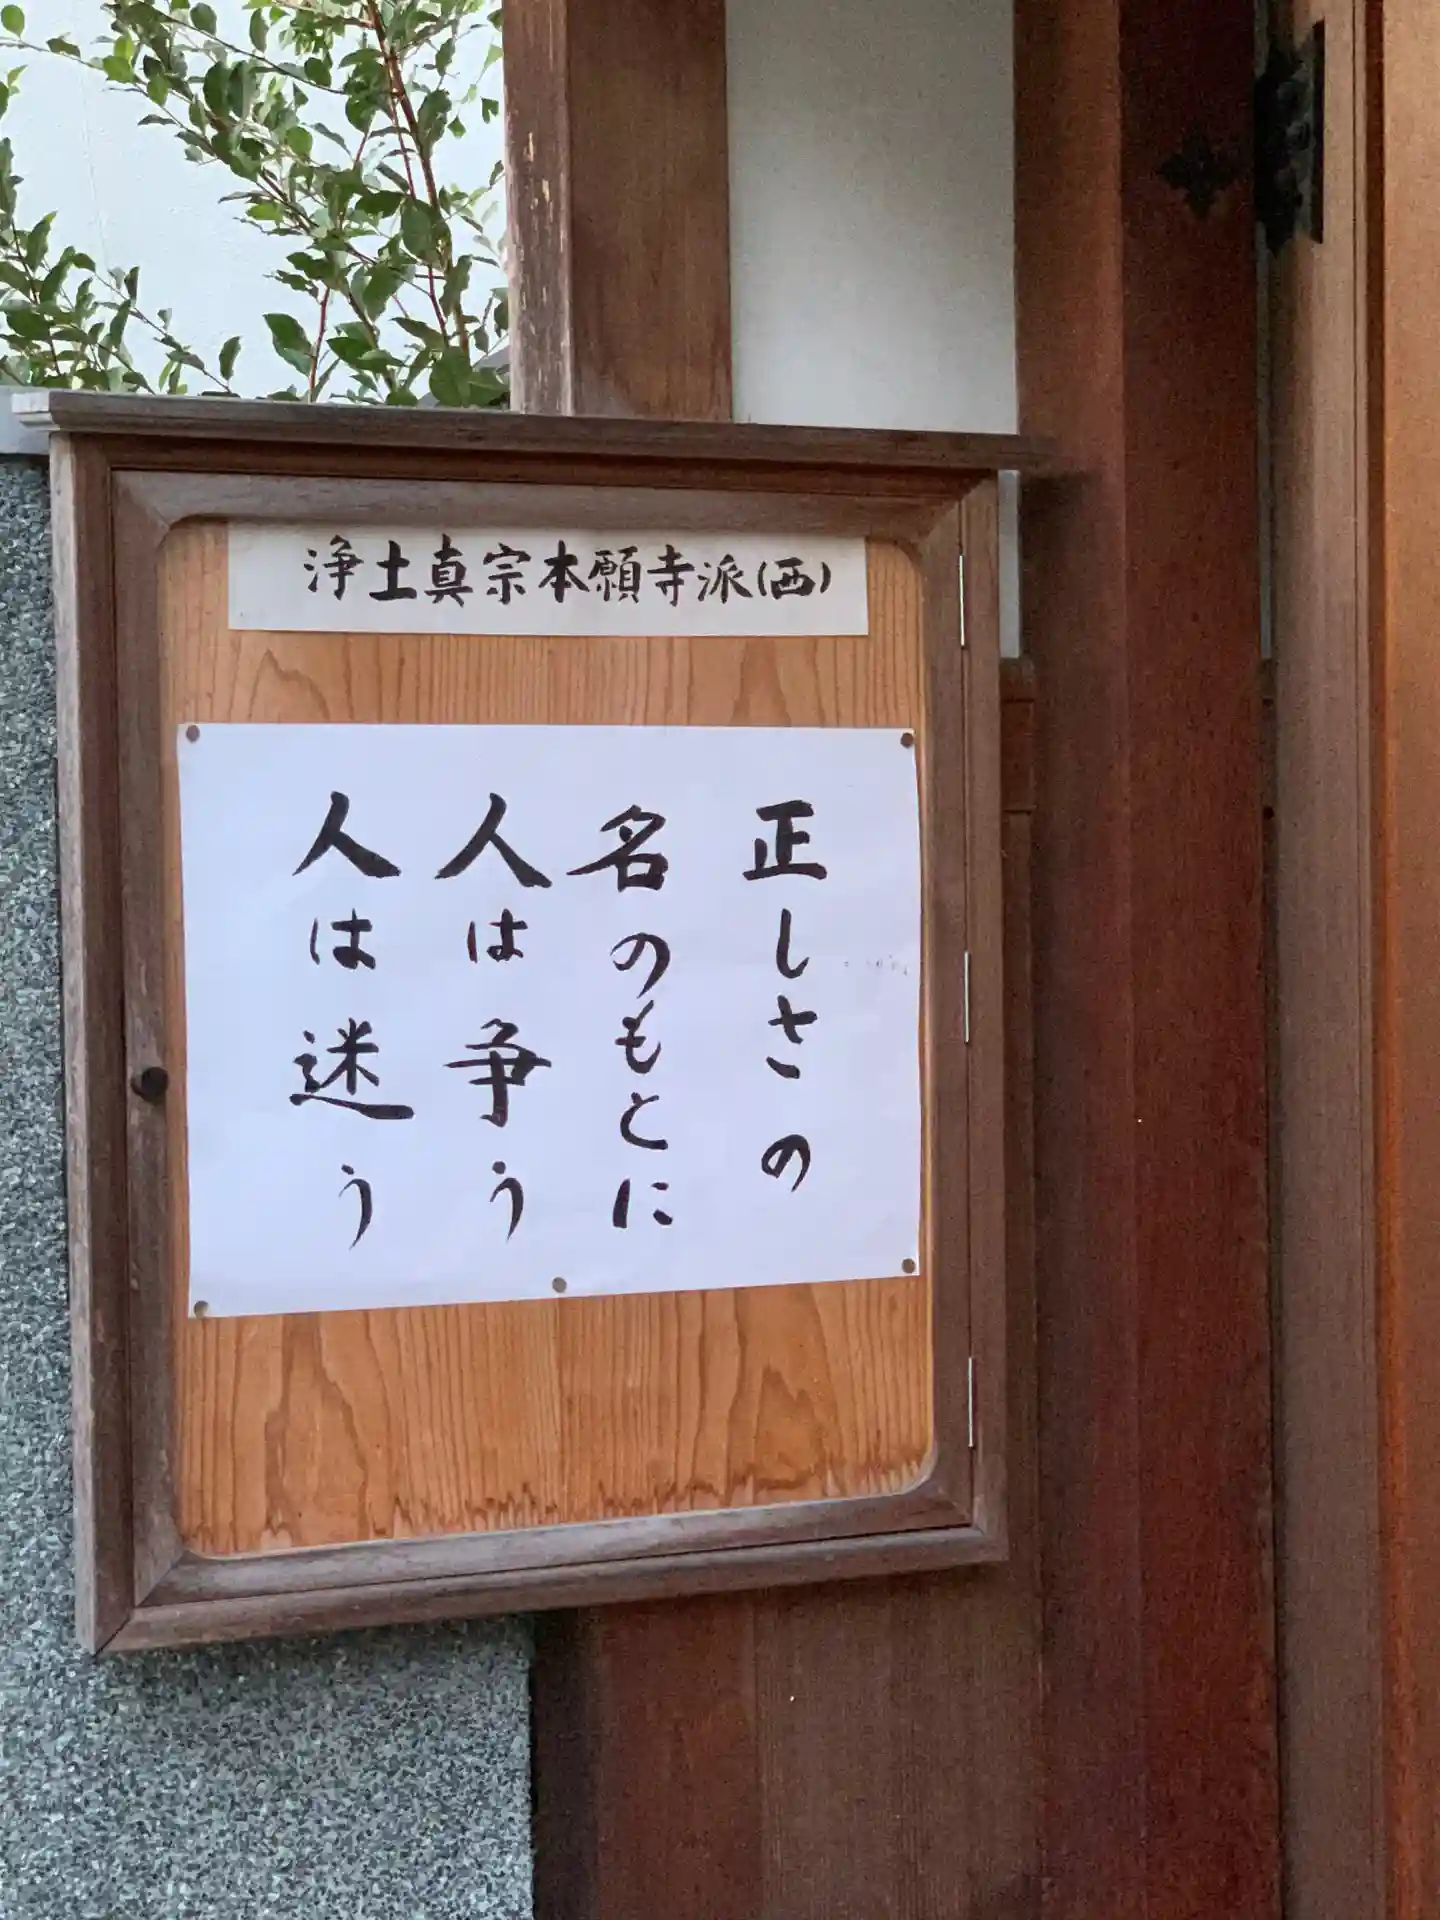 浄土真宗本願寺派(西)
正しさの
名のもとに
人は争う
人は迷う